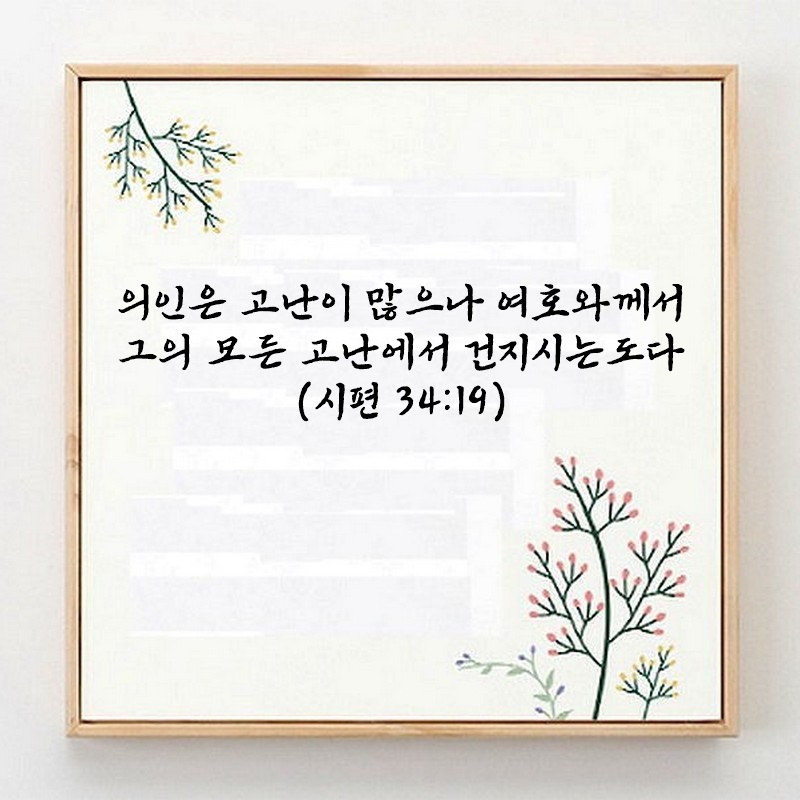 의인은 고난이 많으나 여호와께서
그의 모든 고난에서 건지시는도다
(시편 34:19)